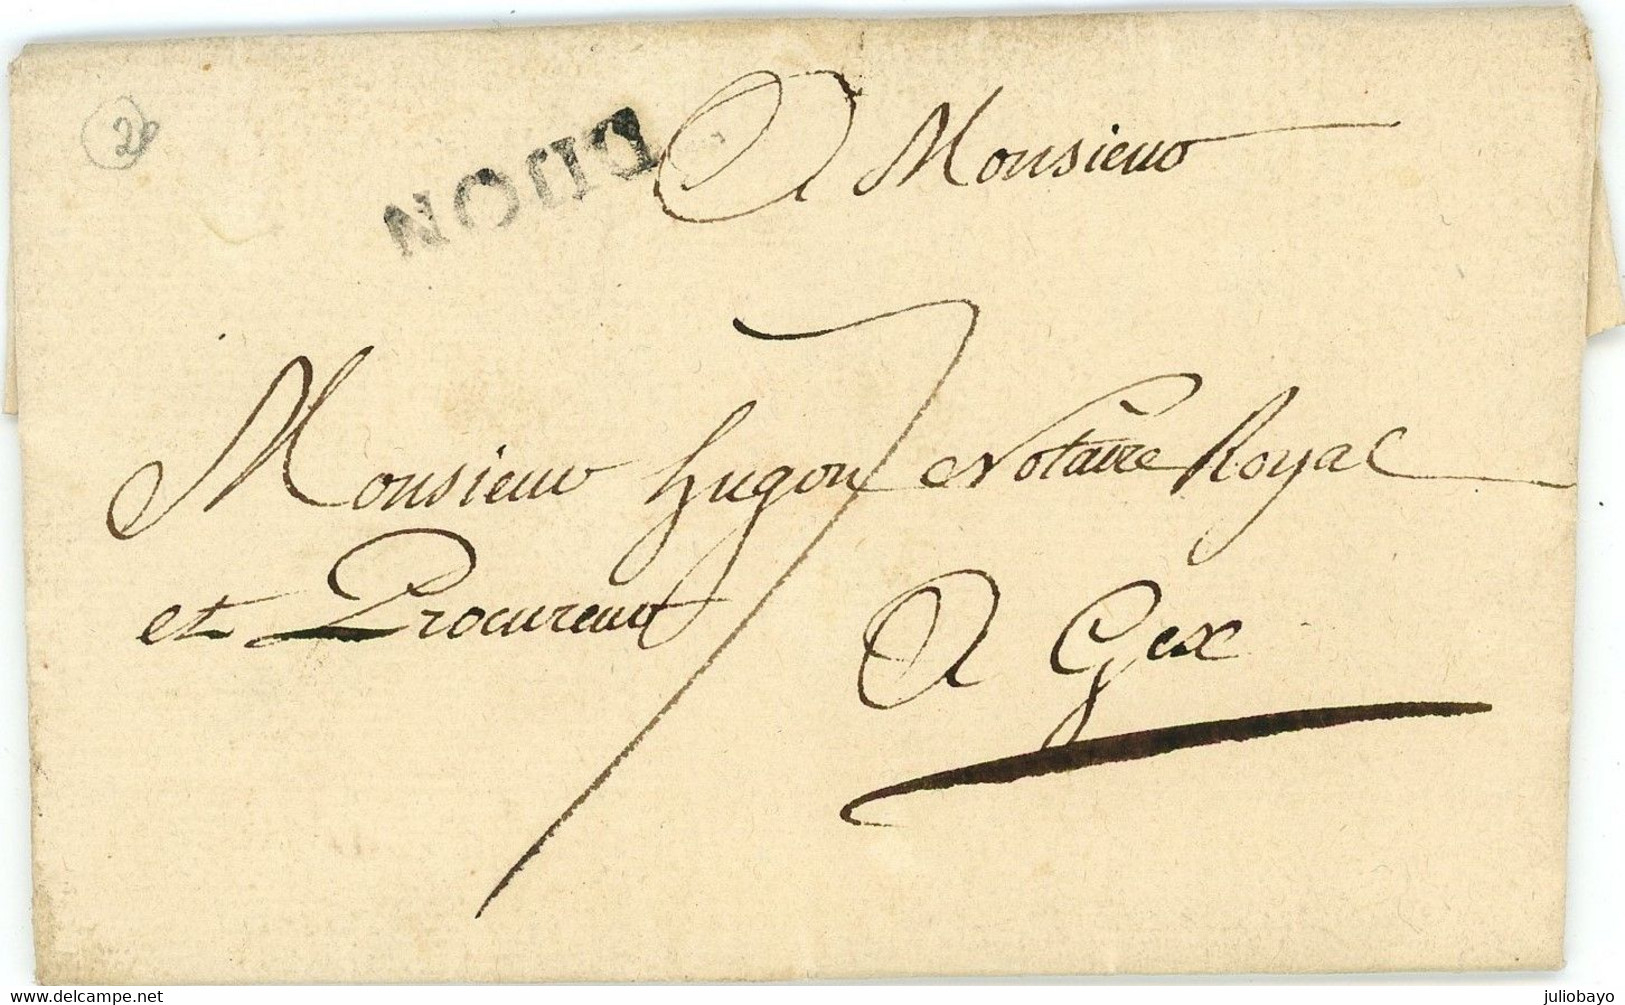 26
DIJON
A Monsieur
7
Monsieur Hugon Notaire Royal
et Procureur
A Gex
juliobayo